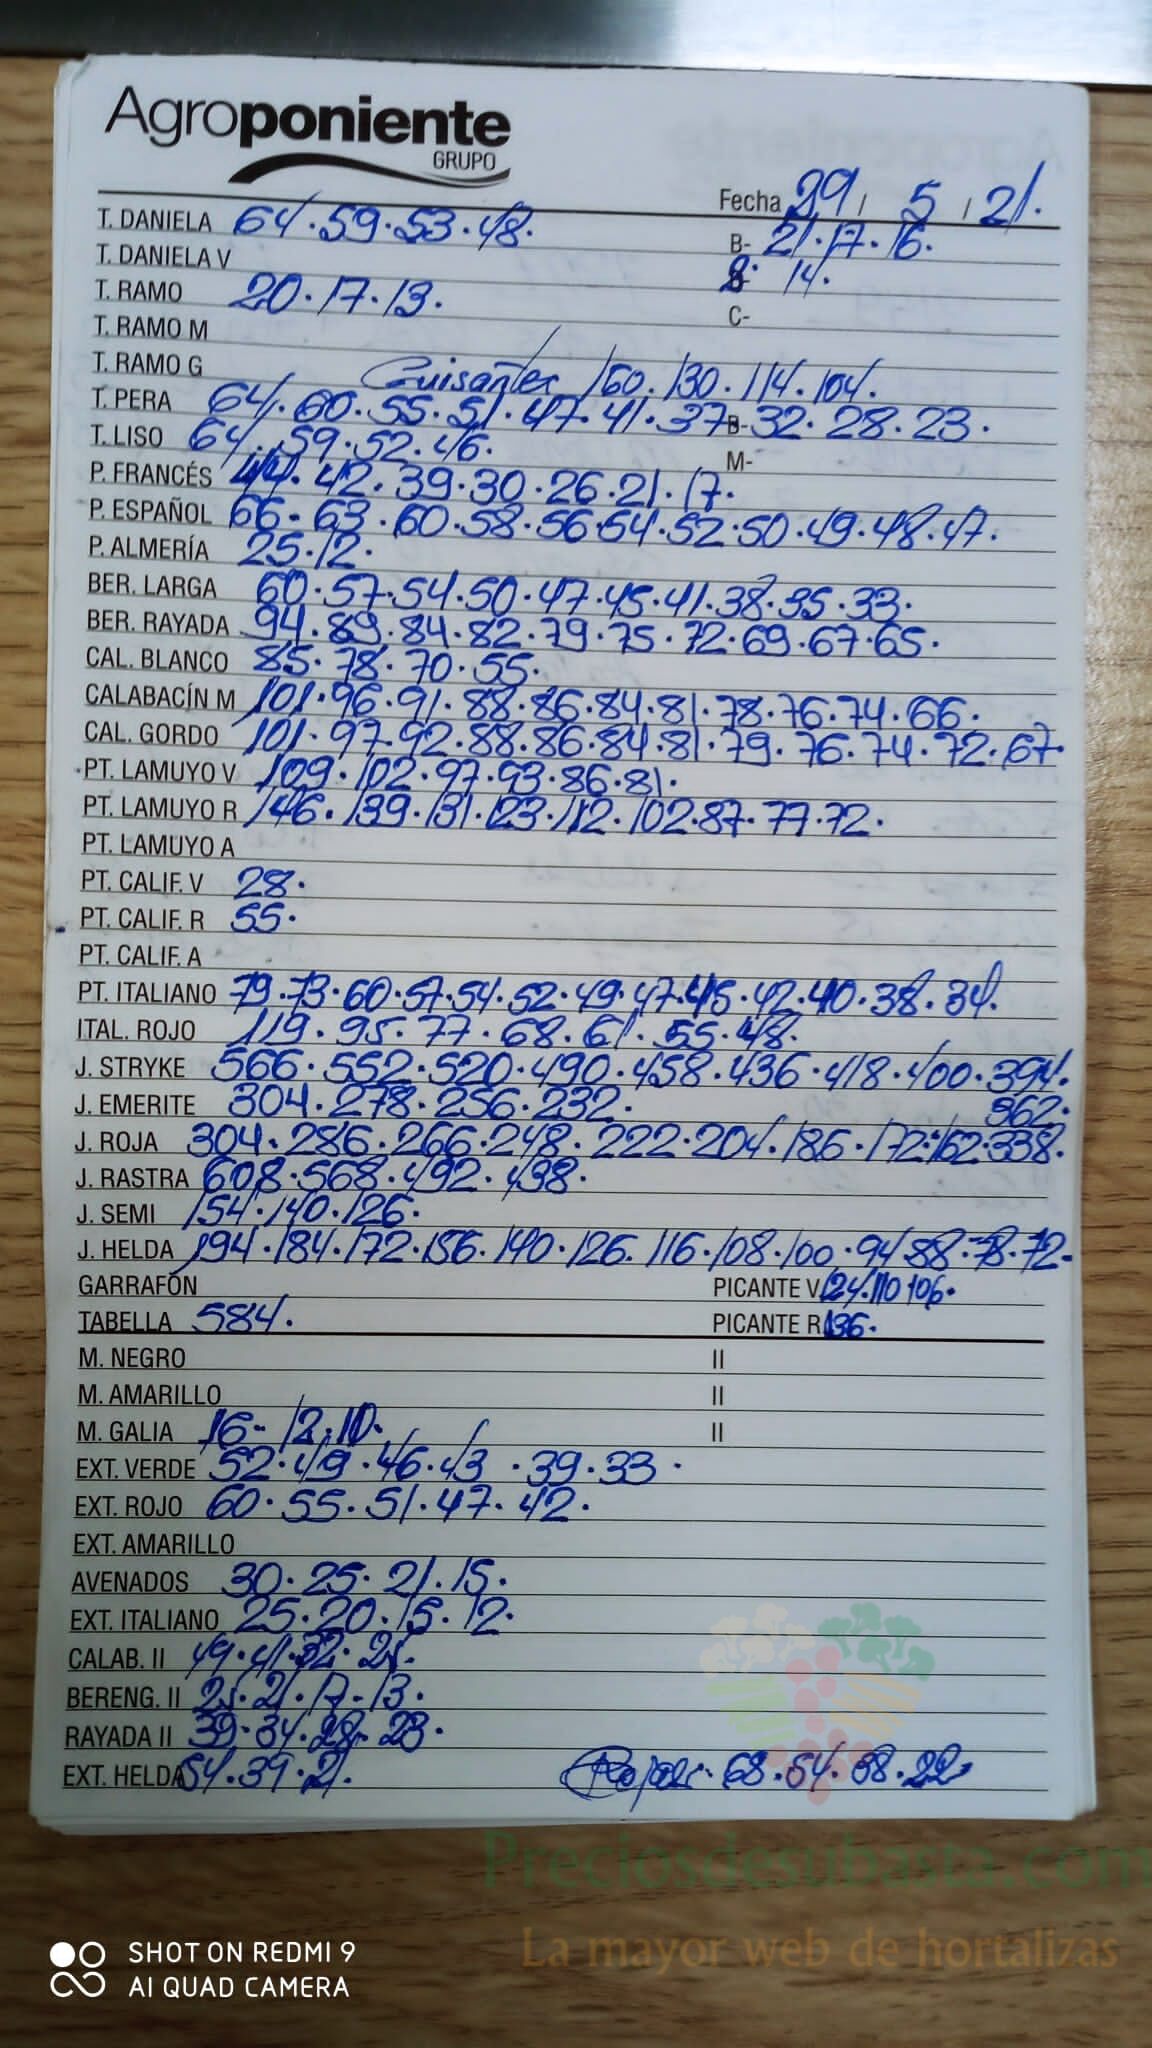 Agroponiente
GRUPO
Fecha 29 / 5 / 21.
T. DANIELA 64.59.53.48. B- 21.17.16.
T. DANIELA V 14.
T. RAMO 20.17.13. C-
T. RAMO M
T. RAMO G Guisantes 160.130.114.104.
T. PERA 64.60.55.51.47.41.37. B- 32.28.23.
T. LISO 64.59.52.46. M-
P. FRANCÉS 44.42.39.30.26.21.17.
P. ESPAÑOL 66-63.60.58.56.54.52.50.49.48.47.
P. ALMERÍA 25.12.
BER. LARGA 60.57.54.50.47.45.41.38.35.33.
BER. RAYADA 94.89.84.82.79.75.72.69.67.65.
CAL. BLANCO 85.78.70.55.
CALABACÍN M 101.96.91.88.86.84.81.78.76.74.66.
CAL. GORDO 101.97.92.88.86.84.81.79.76.74.72.67.
PT. LAMUYO V 109.102.97.93.86.81.
PT. LAMUYO R 146.139.131.123.112.102.87.77.72.
PT. LAMUYO A
PT. CALIF. V 28.
PT. CALIF. R 55.
PT. CALIF. A
PT. ITALIANO 79.73.60.57.54.52.49.47.45.42.40.38.34.
ITAL. ROJO 119.95.77.68.61.55.48.
J. STRYKE 566.552.520.490.458.436.418.400.394.
J. EMERITE 304.278.256.232. 362.
J. ROJA 304.286.266.248.222.204.186.172.162.338.
J. RASTRA 608.568.492.438.
J. SEMI 154.140.126.
J. HELDA 194.184.172.156.140.126.116.108.100.94.88.78.72.
GARRAFÓN PICANTE V 124.110 106.
TABELLA 584. PICANTE R 136.
M. NEGRO II
M. AMARILLO II
M. GALIA 16-12.10. II
EXT. VERDE 52.49.46.43.39.33.
EXT. ROJO 60.55.51.47.42.
EXT. AMARILLO
AVENADOS 30.25.21.15.
EXT. ITALIANO 25.20.15.12.
CALAB. II 49.41.32.25.
BERENG. II 25.21.17-13.
RAYADA II 39.34.28-23.
EXT. HELDA 54.39.21. 68.54.38.22.
Preciosdesubasta.com
La mayor web de hortalizas
SHOT ON REDMI 9
AI QUAD CAMERA